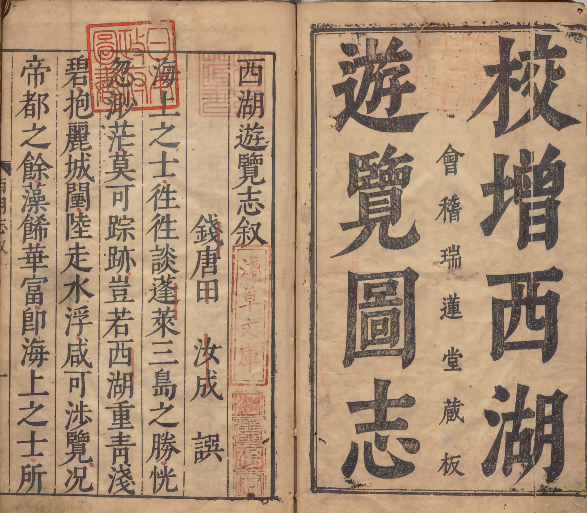 校增西湖
會稽瑞蓮堂藏板
遊覽圖志
西湖遊覽志叙
錢唐田 汝成 譔
海上之士徃徃談蓬萊三島之勝恍
忽渺茫莫可踪跡豈若西湖重青淺
碧抱麗城闉陸走水浮咸可涉覽况
帝都之餘藻餙華富即海上之士所
淺草文庫